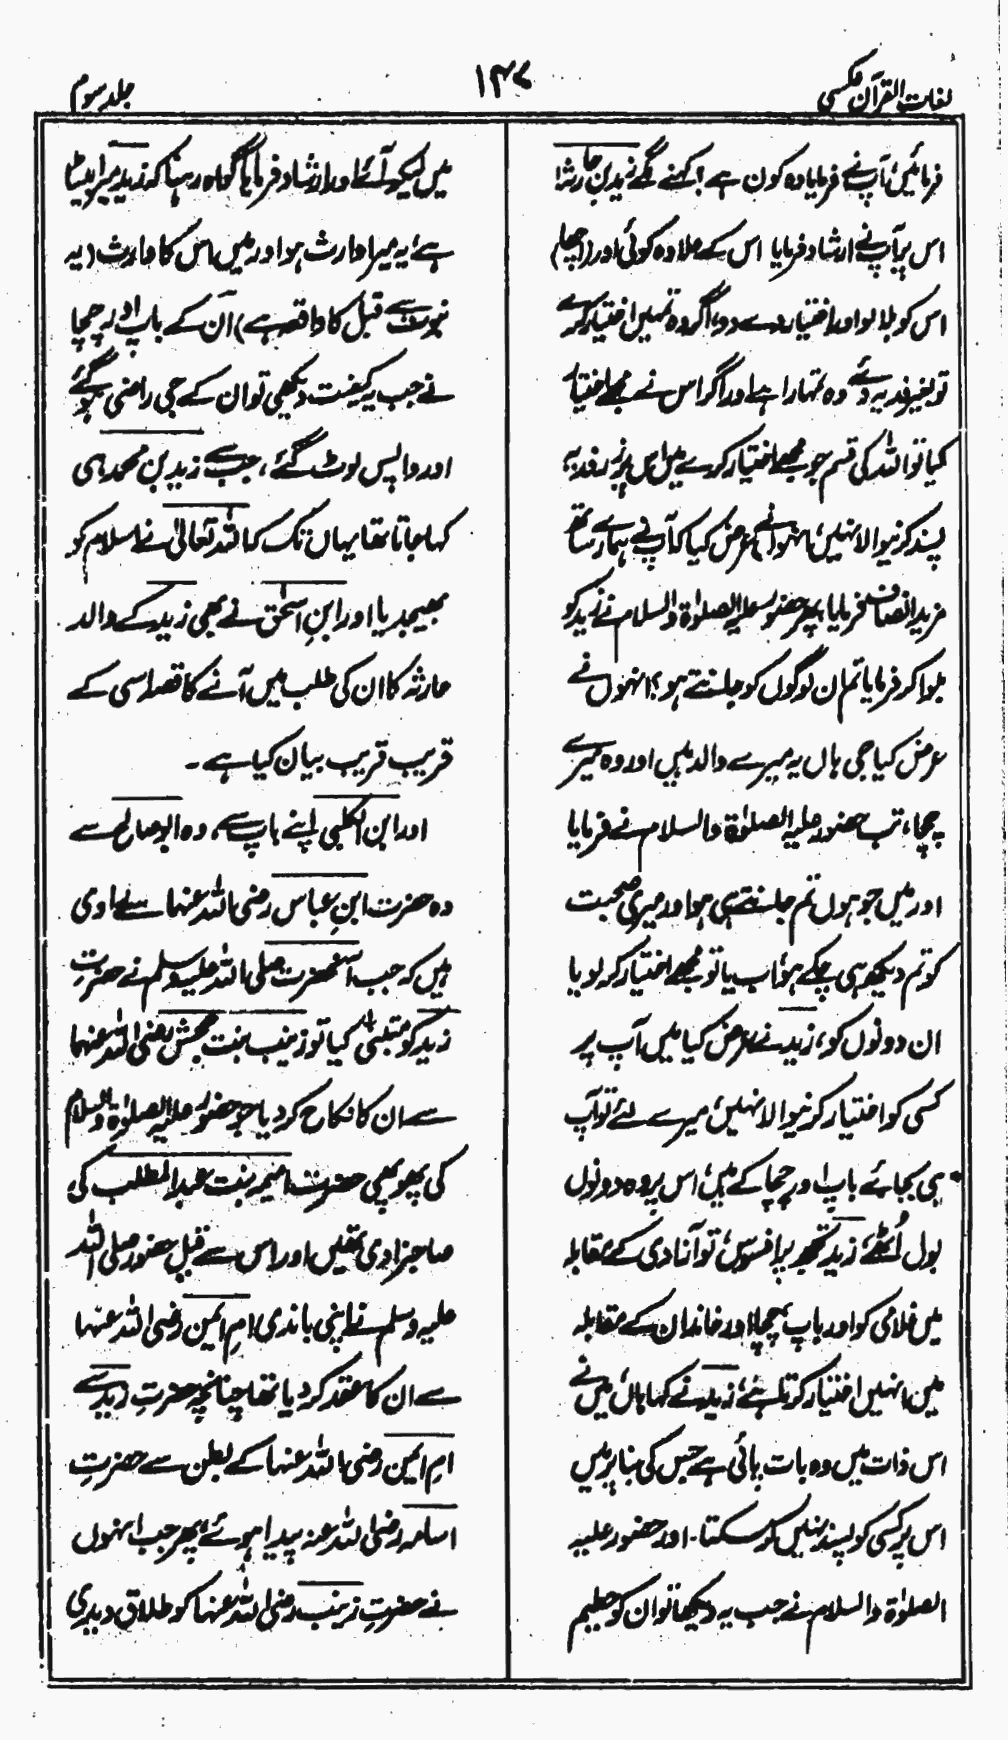 لغات القرآن عکسی
۱۴۷
جلد سوم
فرمائیں، آپ نے فرمایا وہ کون ہے؟ کہنے لگے زید بن حارثہ
اس پر آپ نے ارشاد فرمایا اس کے علاوہ کوئی اور (اچھا)
اس کو بلا لو اور اختیار دے دو، اگر وہ تمہیں اختیار کرے
تو بغیر فدیہ دئے وہ تمہارا ہے اور اگر اس نے مجھے اختیار
کیا تو اللہ کی قسم جو مجھے اختیار کرے میں اس پر زر فدیہ
پسند کرنیوالا نہیں، انہوں نے عرض کیا کہ آپ نے ہمارے ساتھ
مزید انصاف فرمایا، پھر حضور علیہ الصلوٰۃ والسلام نے زید کو
بلوا کر فرمایا تم ان لوگوں کو جانتے ہو؟ انہوں نے
عرض کیا جی ہاں یہ میرے والد ہیں اور وہ میرے
چچا، تب حضور علیہ الصلوٰۃ والسلام نے فرمایا
اور میں جو ہوں تم جانتے ہی ہو اور میری صحبت
کو تم دیکھ ہی چکے ہو، اب یا تو مجھے اختیار کر لو یا
ان دونوں کو، زید نے عرض کیا میں آپ پر
کسی کو اختیار کرنیوالا نہیں، میرے لئے تو آپ
ہی بجائے باپ اور چچا کے ہیں، اس پر وہ دونوں
بول اُٹھے، زید تجھ پر افسوس، تو آزادی کے مقابلہ
میں غلامی کو اور باپ چچا اور خاندان کے مقابلہ
میں انہیں اختیار کرتا ہے، زید نے کہا ہاں، میں نے
اس ذات میں وہ بات پائی ہے جس کی بنا پر میں
اس پر کسی کو پسند نہیں کر سکتا۔ اور حضور علیہ
الصلوٰۃ والسلام نے جب یہ دیکھا تو ان کو حطیم
میں لیکر آئے اور ارشاد فرمایا گواہ رہنا کہ زید میرا بیٹا
ہے، یہ میرا وارث ہو اور میں اس کا وارث (یہ
نبوت سے قبل کا واقعہ ہے) ان کے باپ اور چچا
نے جب یہ کیفیت دیکھی تو ان کے جی راضی ہو گئے
اور واپس لوٹ گئے، جب سے زید بن محمد ہی
کہا جاتا تھا یہاں تک کہ اللہ تعالیٰ نے اسلام کو
بھیجدیا اور ابنِ اسحٰق نے بھی زید کے والد
حارثہ کا ان کی طلب میں آنے کا قصہ اسی کے
قریب قریب بیان کیا ہے۔
اور ابن الکلبی اپنے باپ سے، وہ ابو صالح سے
وہ حضرت ابنِ عباس رضی اللہ عنہا سے راوی
ہیں کہ جب آنحضرت صلی اللہ علیہ وسلم نے حضرتِ
زید کو متبنیٰ کیا تو زینب بنت جحش رضی اللہ عنہا
سے ان کا نکاح کر دیا جو حضور علیہ الصلوٰۃ والسلام
کی پھوپھی حضرت امیمہ بنت عبد المطلب کی
صاجزادی تھیں اور اس سے قبل حضور صلی اللہ
علیہ وسلم نے اپنی باندی امِ ایمن رضی اللہ عنہا
سے ان کا عقد کر دیا تھا چنانچہ حضرتِ زید سے
امِ ایمن رضی اللہ عنہا کے بطن سے حضرتِ
اسامہ رضی اللہ عنہ پیدا ہوئے، پھر جب انہوں
نے حضرتِ زینب رضی اللہ عنہا کو طلاق دیدی